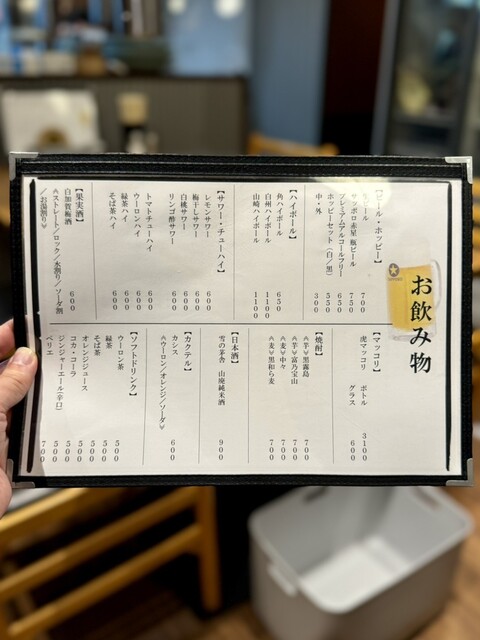 お飲み物
【ビール・ホッピー】
生ビール 700
サッポロ赤星 瓶ビール 750
プレミアムアルコールフリー 650
ホッピーセット（白／黒） 500
中・外 300
【ハイボール】
角ハイボール 650
白州ハイボール 1100
山崎ハイボール 1100
【サワー・チューハイ】
レモンサワー 600
梅干しサワー 600
白桃サワー 600
リンゴ酢サワー 600
トマトチューハイ 600
ウーロンハイ 600
緑茶ハイ 600
そば茶ハイ 600
【果実酒】
白加賀梅酒 600
≪ストレート／ロック／水割り／ソーダ割
／お湯割り≫
【マッコリ】
虎マッコリ ボトル 3100
グラス 600
【焼酎】
≪芋≫黒霧島 700
≪芋≫富乃宝山 700
≪麦≫中々 700
≪麦≫黒和ら麦 700
【日本酒】
雪の茅舎 山廃純米酒 900
【カクテル】
カシス 600
≪ウーロン／オレンジ／ソーダ≫
【ソフトドリンク】
ウーロン茶 500
緑茶 500
そば茶 500
オレンジジュース 500
コカ・コーラ 500
ジンジャーエール（辛口） 500
ペリエ 700